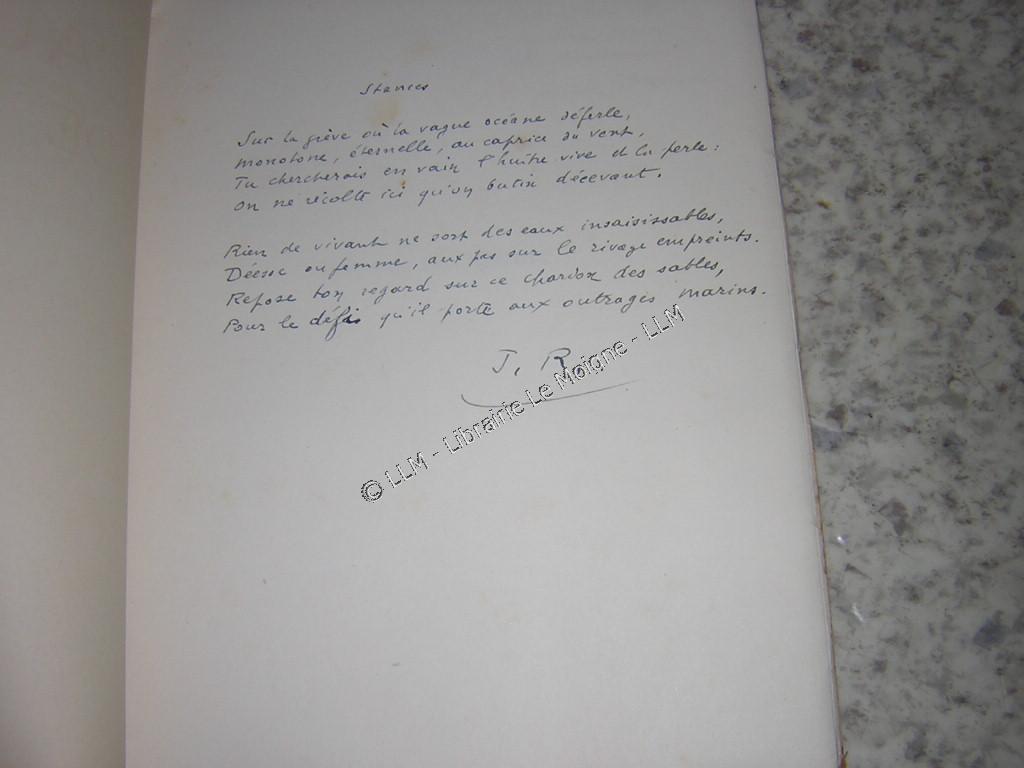 Stances
Sur la grève où la vague océane déferle,
monotone, éternelle, au caprice du vent,
Tu chercherais en vain l'huître vive et la perle :
on ne récolte ici qu'un butin décevant.
Rien de vivant ne sort des eaux insaisissables,
Déesse ou femme, aux pas sur le rivage empreints.
Repose ton regard sur ce chardon des sables,
Pour le défi qu'il porte aux outrages marins.
J. R.
© LLM - Librairie Le Moigne - LLM